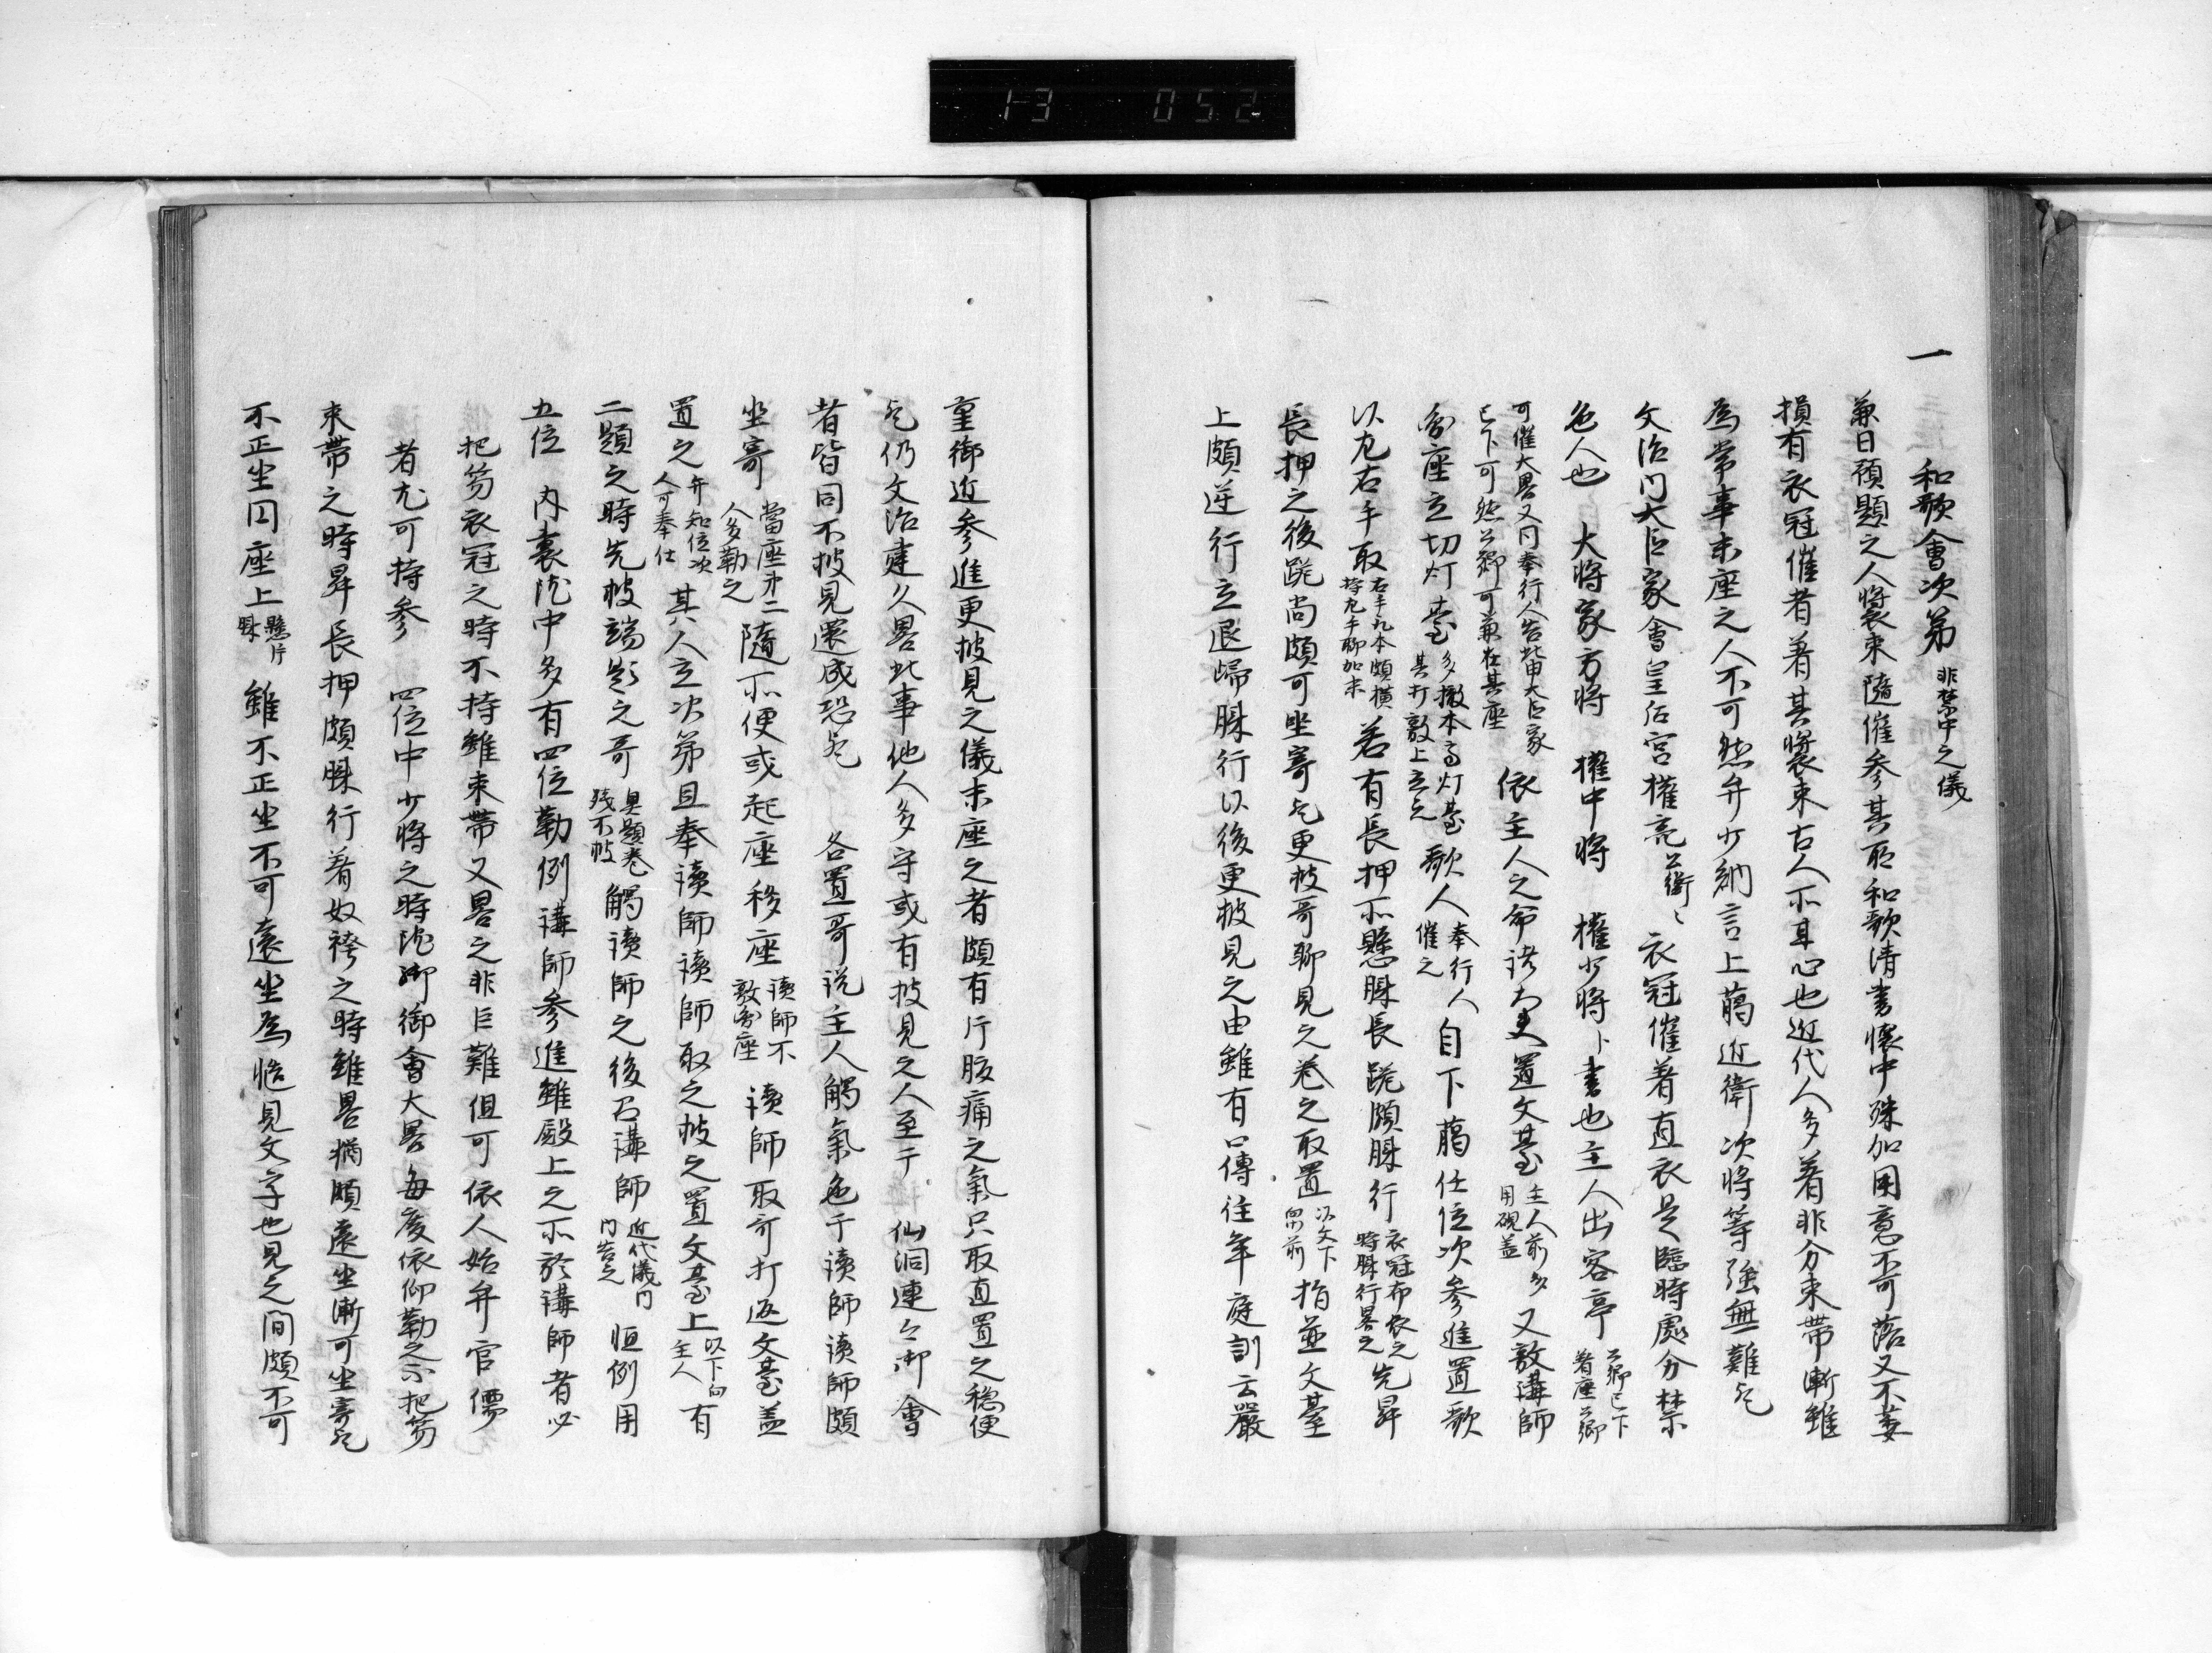 13 052
一
和歌會次第 非禁中之儀
兼日預題之人裝束隨催參其所和歌清書懷中殊加用意不可落又不萎
損有衣冠催者著其裝束古人不耳心也近代人多著非分束帶漸雖
為常事末座之人不可然弁少納言上﨟近衛次將等強無難歟
文治門大臣家會皇后宮權亮公衡〻衣冠催着直衣是臨時處分禁
色人也 大將家方將 權中將 權少將卜書也主人出客亭 公卿已下着座公卿
可催大略又同奉行人告此由大臣家已下可然公卿可兼在其座 依主人之命諸大夫置文臺 主人前多用硯蓋 又敷講師
圓座立切灯臺 多撤本高灯臺其打敷上立之 歌人 奉行人催之 自下﨟任位次參進置歌
以左右手取 右手取本頗横持左手聊加末 若有長押所懸膝長跪頗膝行 衣冠布衣之時膝行略之 先昇
長押之後跪尚頗可坐寄歟更披哥聊見之卷之取置 以文下向前 指並文臺
上頗逆行立退歸膝行以後更披見之由雖有口傳往年庭訓云嚴
重御近參進更披見之儀末座之者頗有斤脛痛之氣只取直置之穩便
歟仍文治建久略此事他人多守或有披見之人至于 仙洞連〻御會
者皆同不披見還成恐歟 各置哥訖主人觸氣色于讀師讀師頗
坐寄 當座第二人多勤之 隨所便或起座移座 讀師不敷圓座 讀師取哥打返文臺蓋
置之 弁知位次人可奉仕 其人立次第且奉讀師讀師取之披之置文臺上 以下向主人 有
二題之時先披端題之哥 奧題卷殘不披 觸讀師之後召講師 近代儀同門告之 恒例用
五位 内裏院中多有四位勤例講師參進雖殿上之所於講師者必
把笏衣冠之時不持雖束帶又略之非巨難但可依人始弁官儒
者尤可持參 四位中少將之時院御御會大略每度依仰勤之不把笏
束帶之時昇長押頗膝行着奴袴之時雖略猶頗遠坐漸可坐寄歟
不正坐円座上 懸片膝 雖不正坐不可遠坐為慥見文字也見之間頗不可